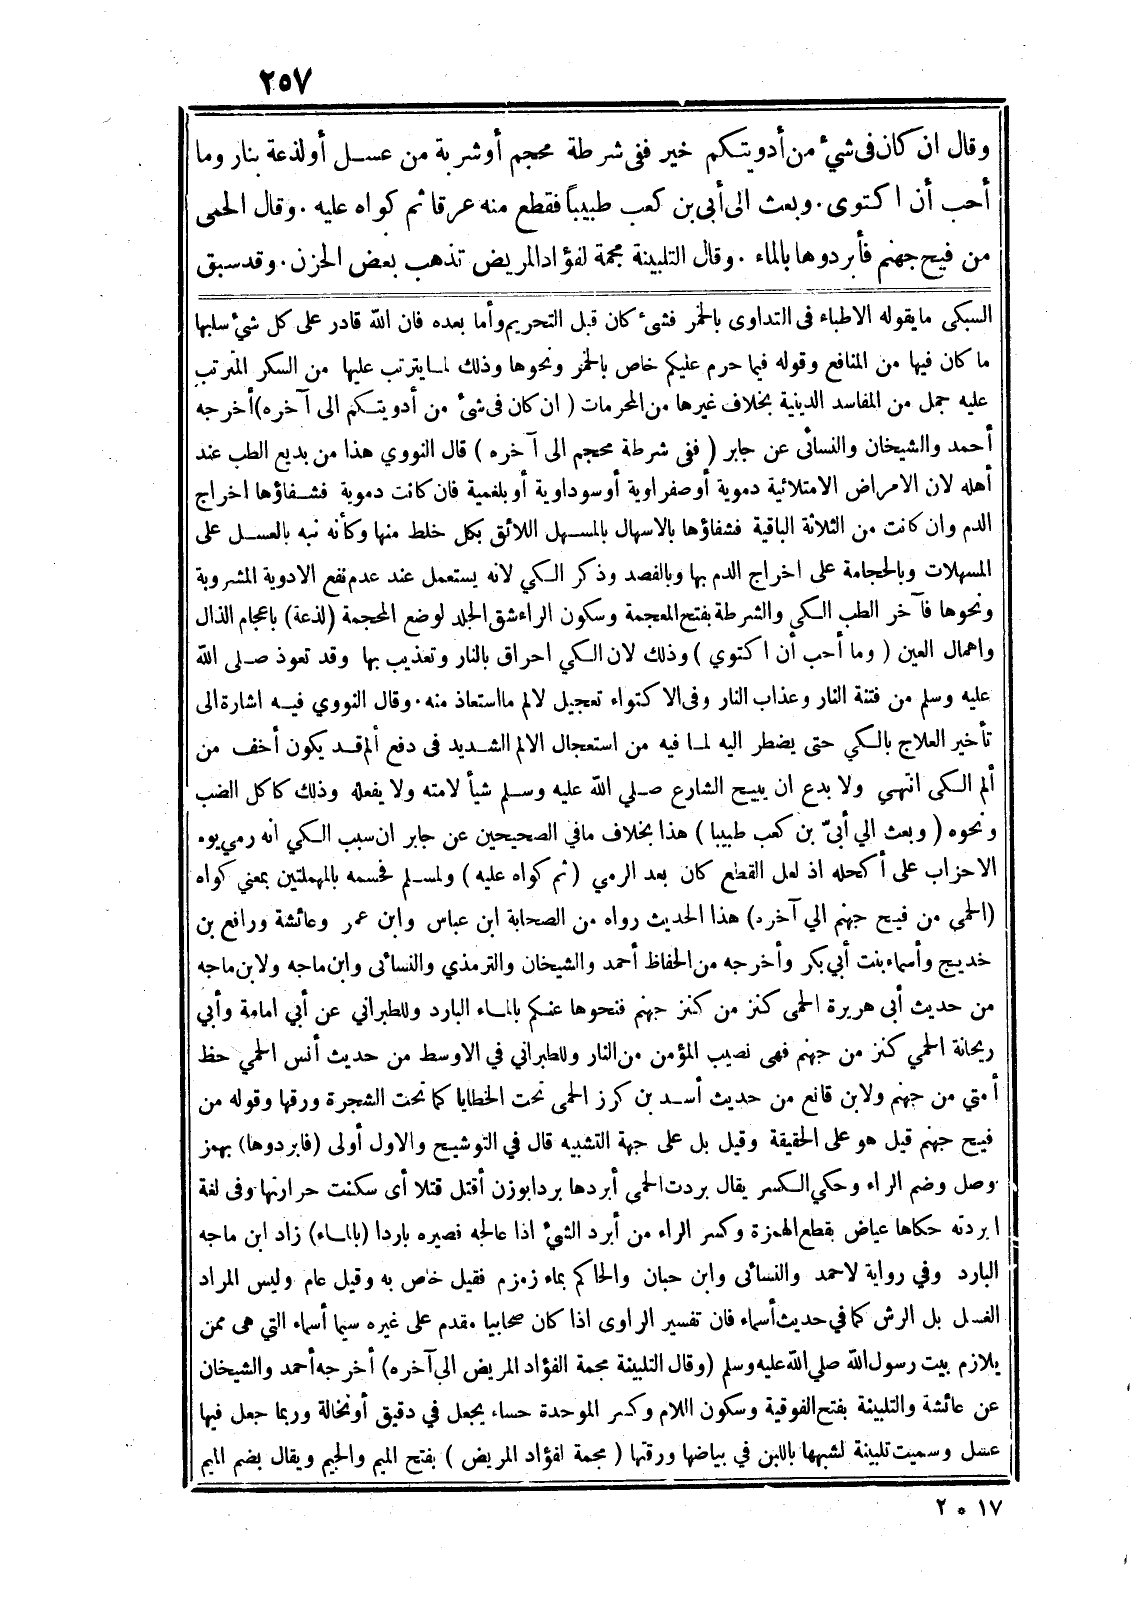 ٢٥٧
وقال ان كان فى شئ من أدويتكم خير ففى شرطة محجم أو شربة من عسل أو لذعة بنار وما
أحب أن اكتوى . وبعث الى أبي بن كعب طبيباً فقطع منه عرقا ثم كواه عليه . وقال الحمى
من فيح جهنم فأبردوها بالماء . وقال التلبينة مجمة لفؤاد المريض تذهب بعض الحزن . وقد سبق
السبكى ما يقوله الاطباء فى التداوى بالخمر فشئ كان قبل التحريم وأما بعده فان الله قادر على كل شئ سلبها
ما كان فيها من المنافع وقوله فيما حرم عليكم خاص بالخمر ونحوها وذلك لما يترتب عليها من السكر المترتب
عليه جمل من المفاسد الدينية بخلاف غيرها من المحرمات ( ان كان فى شئ من أدويتكم الى آخره) أخرجه
أحمد والشيخان والنسائى عن جابر ( ففى شرطة محجم الى آخره ) قال النووي هذا من بديع الطب عند
أهله لان الامراض الامتلائية دموية أو صفراوية أو سوداوية أو بلغمية فان كانت دموية فشفاؤها اخراج
الدم وان كانت من الثلاثة الباقية فشفاؤها بالاسهال بالمسهل اللائق بكل خلط منها وكأنه نبه بالعسل على
المسهلات وبالحجامة على اخراج الدم بها وبالفصد وذكر الكي لانه يستعمل عند عدم نفع الادوية المشروبة
ونحوها فآخر الطب الكى والشرطة بفتح المعجمة وسكون الراء شق الجلد لوضع المحجمة (لذعة) باعجام الذال
واهمال العين ( وما أحب أن اكتوي ) وذلك لان الكي احراق بالنار وتعذيب بها وقد تعوذ صلى الله
عليه وسلم من فتنة النار وعذاب النار وفى الاكتواء تعجيل لالم ما استعاذ منه . وقال النووي فيه اشارة الى
تأخير العلاج بالكي حتى يضطر اليه لما فيه من استعجال الالم الشديد فى دفع ألم قد يكون أخف من
ألم الكى انتهي ولا بدع ان يبيح الشارع صلي الله عليه وسلم شيأ لامته ولا يفعله وذلك كاكل الضب
ونحوه ( وبعث الي أبيّ بن كعب طبيبا ) هذا بخلاف مافي الصحيحين عن جابر ان سبب الكي انه رمي يوم
الاحزاب على أكحله اذ لعل القطع كان بعد الرمي (ثم كواه عليه ) ولمسلم فحسمه بالمهملتين بمعني كواه
(الحمي من فيح جهنم الي آخره) هذا الحديث رواه من الصحابة ابن عباس وابن عمر وعائشة ورافع بن
خديج وأسماء بنت أبي بكر وأخرجه من الحفاظ أحمد والشيخان والترمذي والنسائى وابن ماجه ولابن ماجه
من حديث أبى هريرة الحمى كنز من كنز جهنم فنحوها عنكم بالماء البارد وللطبراني عن أبي امامة وأبي
ريحانة الحمي كنز من جهنم فهى نصيب المؤمن من النار وللطبراني في الاوسط من حديث أنس الحمي حظ
أمتي من جهنم ولابن قانع من حديث أسد بن كرز الحمى تحت الخطايا كما تحت الشجرة ورقها وقوله من
فيح جهنم قيل هو على الحقيقة وقيل بل على جهة التشبيه قال في التوشيح والاول أولى (فابردوها) بهمز
وصل وضم الراء وحكي الكسر يقال بردت الحمي أبردها بردا بوزن أقتل قتلا أى سكنت حرارتها وفى لغة
ابردته حكاها عياض بقطع الهمزة وكسر الراء من أبرد الشئ اذا عالجه فصيره باردا (بالماء) زاد ابن ماجه
البارد وفي رواية لاحمد والنسائى وابن حبان والحاكم بماء زمزم فقيل خاص به وقيل عام وليس المراد
الغسل بل الرش كما في حديث أسماء فان تفسير الراوى اذا كان صحابيا مقدم على غيره سيما أسماء التي هى ممن
يلازم بيت رسول الله صلي الله عليه وسلم (وقال التلبينة مجمة الفؤاد المريض الى آخره) أخرجه أحمد والشيخان
عن عائشة والتلبينة بفتح الفوقية وسكون اللام وكسر الموحدة حساء يجعل في دقيق أو نخالة وربما جعل فيها
عسل وسميت تلبينة لشبهها باللبن في بياضها ورقتها ( مجمة لفؤاد المريض ) بفتح الميم والجيم ويقال بضم الميم
١٧ * ٢